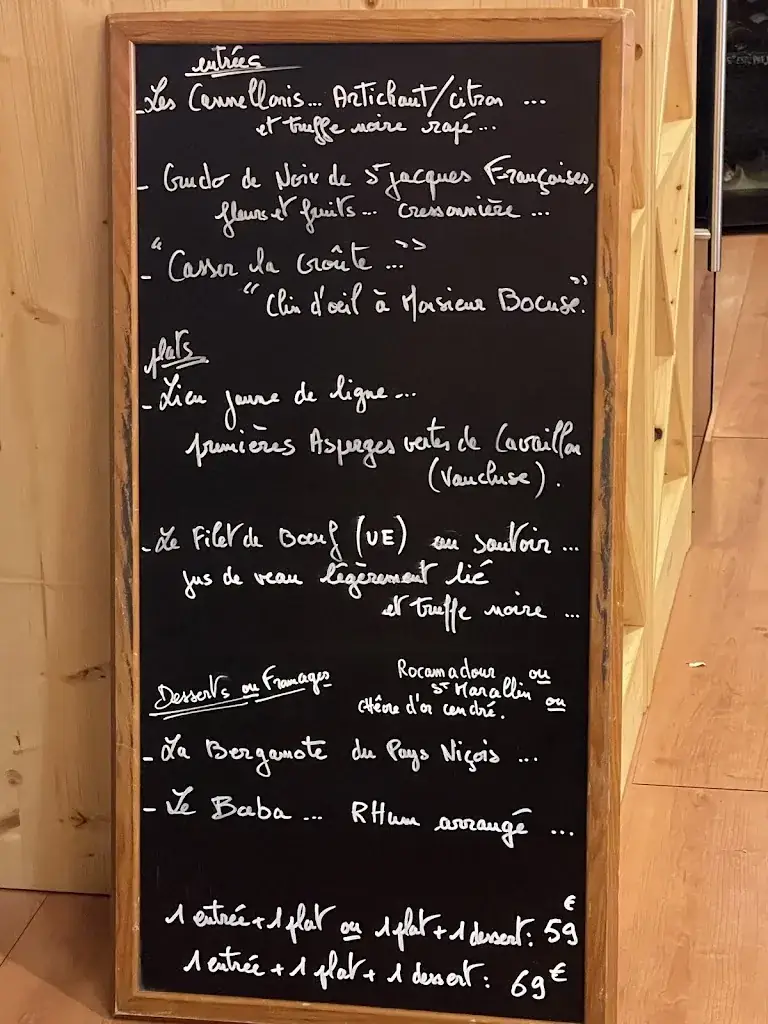 entrées
- Les Cannellonis... Artichaut/citron ...
et truffe noire rapé...
- Crudo de Noix de St Jacques Françaises,
fleurs et fruits... cressonnière ...
- "Casser la Croûte ..."
"Clin d'oeil à Monsieur Bocuse."
plats
- Lieu jaune de ligne...
premières Asperges vertes de Cavaillon
(Vaucluse).
- Le Filet de Boeuf (UE) au sautoir ...
jus de veau légèrement lié
et truffe noire ...
Desserts ou Fromages
Rocamadour ou
St Marcellin ou
chèvre d'or cendré.
- La Bergamote du Pays Niçois ...
- Le Baba ... RHum arrangé ...
1 entrée + 1 plat ou 1 plat + 1 dessert : 59€
1 entrée + 1 plat + 1 dessert : 69€